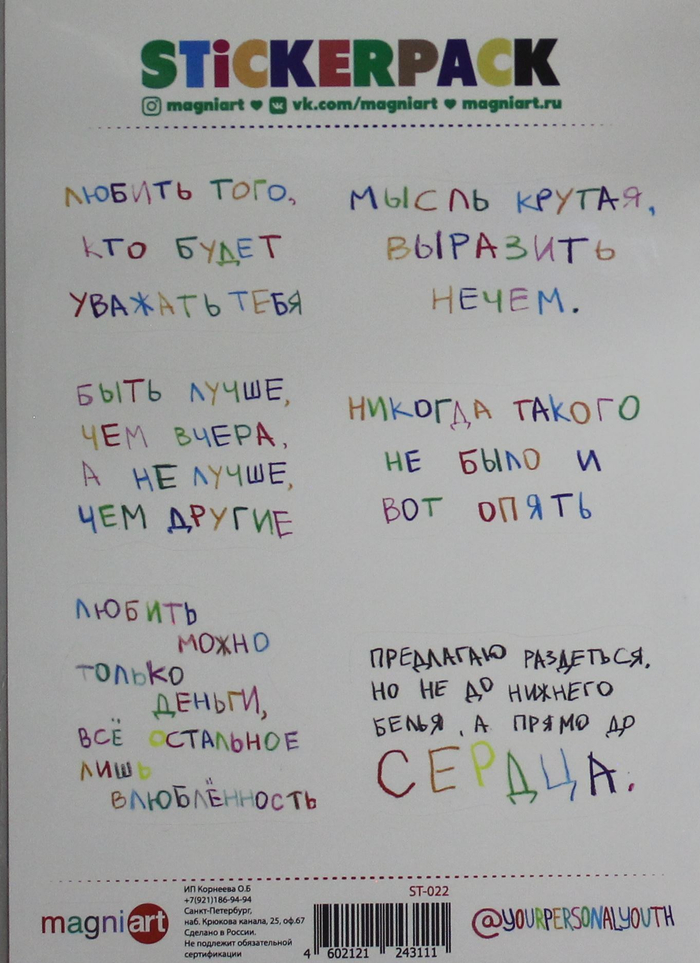 STiCKERPACK
magniart ♥ vk.com/magniart ♥ magniart.ru
ЛЮБИТЬ ТОГО,
КТО БУДЕТ
УВАЖАТЬ ТЕБЯ
МЫСЛЬ КРУТАЯ,
ВЫРАЗИТЬ
НЕЧЕМ.
БЫТЬ ЛУЧШЕ,
ЧЕМ ВЧЕРА,
А НЕ ЛУЧШЕ,
ЧЕМ ДРУГИЕ
НИКОГДА ТАКОГО
НЕ БЫЛО И
ВОТ ОПЯТЬ
ЛЮБИТЬ
МОЖНО
ТОЛЬКО
ДЕНЬГИ,
ВСЁ ОСТАЛЬНОЕ
ЛИШЬ
ВЛЮБЛЁННОСТЬ
ПРЕДЛАГАЮ РАЗДЕТЬСЯ.
НО НЕ ДО НИЖНЕГО
БЕЛЬЯ, А ПРЯМО ДО
СЕРДЦА.
magniart
ИП Корнеева О.Б
+7(921)186-94-94
Санкт-Петербург,
наб. Крюкова канала, 25, оф.67
Сделано в России.
Не подлежит обязательной
сертификации
ST-022
4 602121 243111
@YOURPERSONALYOUTH